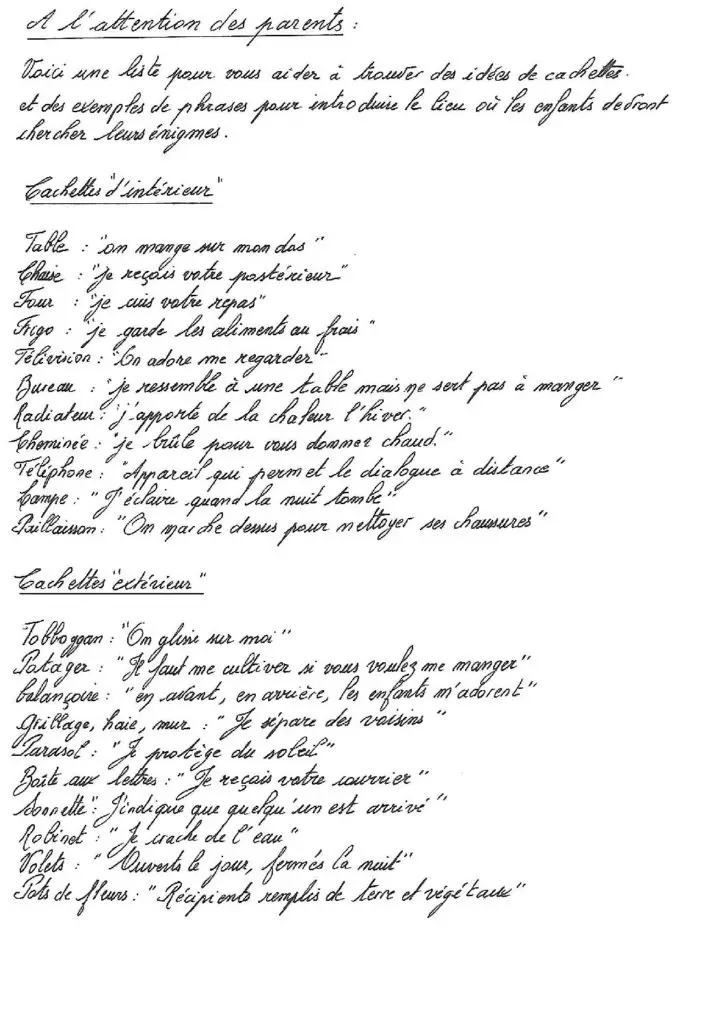 A l'attention des parents :
Voici une liste pour vous aider à trouver des idées de cachettes.
et des exemples de phrases pour introduire le lieu où les enfants devront
chercher leurs énigmes.
Cachettes "d'intérieur"
Table : "on mange sur mon dos"
Chaise : "je reçois votre postérieur"
Four : "je cuis votre repas"
Frigo : "je garde les aliments au frais"
Télévision : "On adore me regarder"
Bureau : "je ressemble à une table mais ne sert pas à manger"
Radiateur : "j'apporte de la chaleur l'hiver."
Cheminée : "je brûle pour vous donner chaud."
Téléphone : "Appareil qui permet le dialogue à distance"
Lampe : "J'éclaire quand la nuit tombe"
Paillaisson : "On marche dessus pour nettoyer ses chaussures"
Cachettes "extérieur"
Tobboggan : "On glisse sur moi"
Potager : "Il faut me cultiver si vous voulez me manger"
balançoire : "en avant, en arrière, les enfants m'adorent"
Grillage, haie, mur : "Je sépare des voisins"
Parasol : "Je protège du soleil"
Boîte aux lettres : "Je reçois votre courrier"
Sonnette" : J'indique que quelqu'un est arrivé"
Robinet : "Je crache de l'eau"
Volets : "Ouverts le jour, fermés la nuit"
Pots de fleurs : "Récipients remplis de terre et végétaux"